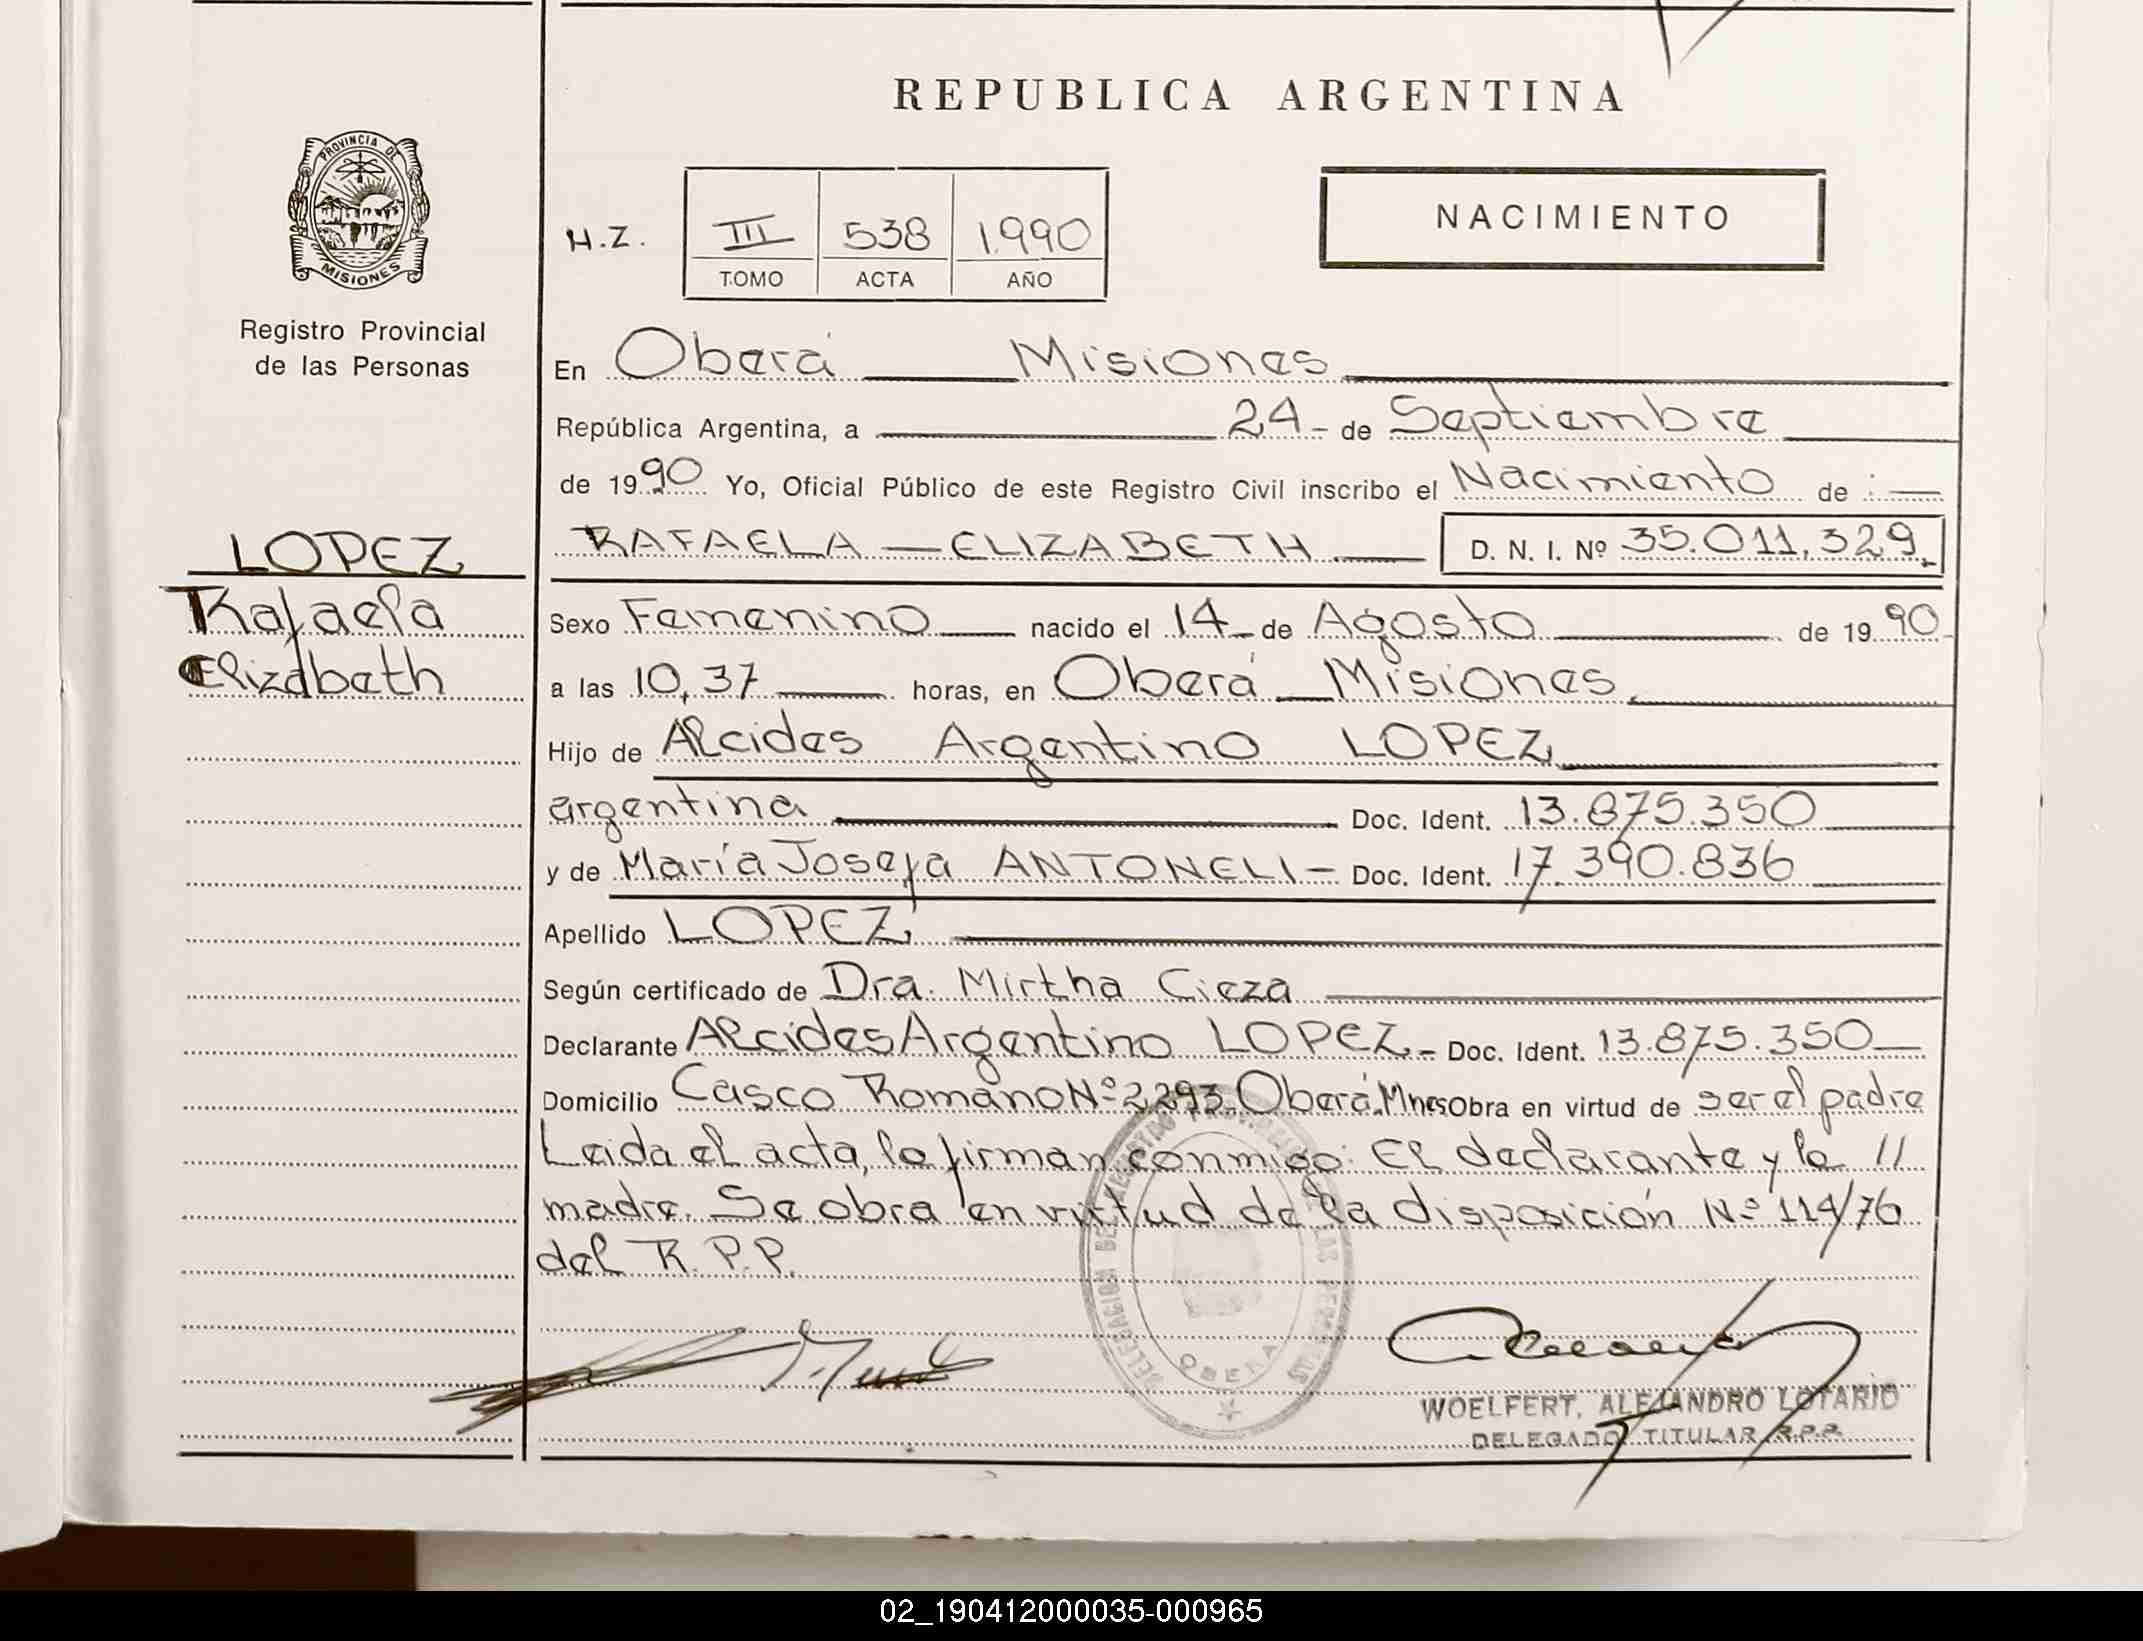 REPUBLICA ARGENTINA
PROVINCIA DE
MISIONES
Registro Provincial
de las Personas
H.Z. III 538 1.990
TOMO ACTA AÑO
NACIMIENTO
En Oberá Misiones
República Argentina, a 24 de Septiembre
de 1990 Yo, Oficial Público de este Registro Civil inscribo el Nacimiento de :
LOPEZ
Rafaela
Elizabeth
RAFAELA ELIZABETH D. N. I. Nº 35.011.329
Sexo Femenino nacido el 14 de Agosto de 1990
a las 10,37 horas, en Oberá Misiones
Hijo de Alcides Argentino LOPEZ
argentina Doc. Ident. 13.875.350
y de María Josefa ANTONELI Doc. Ident. 17.390.836
Apellido LOPEZ
Según certificado de Dra. Mirtha Cieza
Declarante Alcides Argentino LOPEZ Doc. Ident. 13.875.350
Domicilio Casco Romano Nº 2293. Oberá, Mnes Obra en virtud de ser el padre
Leida el acta, la firman conmigo: El declarante y la //
madre. Se obra en virtud de la disposición Nº 114/76
del R.P.P.
DELEGACION DEL REGISTRO PROVINCIAL DE LAS PERSONAS
OBERA
WOELFERT, ALEJANDRO LOTARIO
DELEGADO TITULAR R.P.P.
02_190412000035-000965